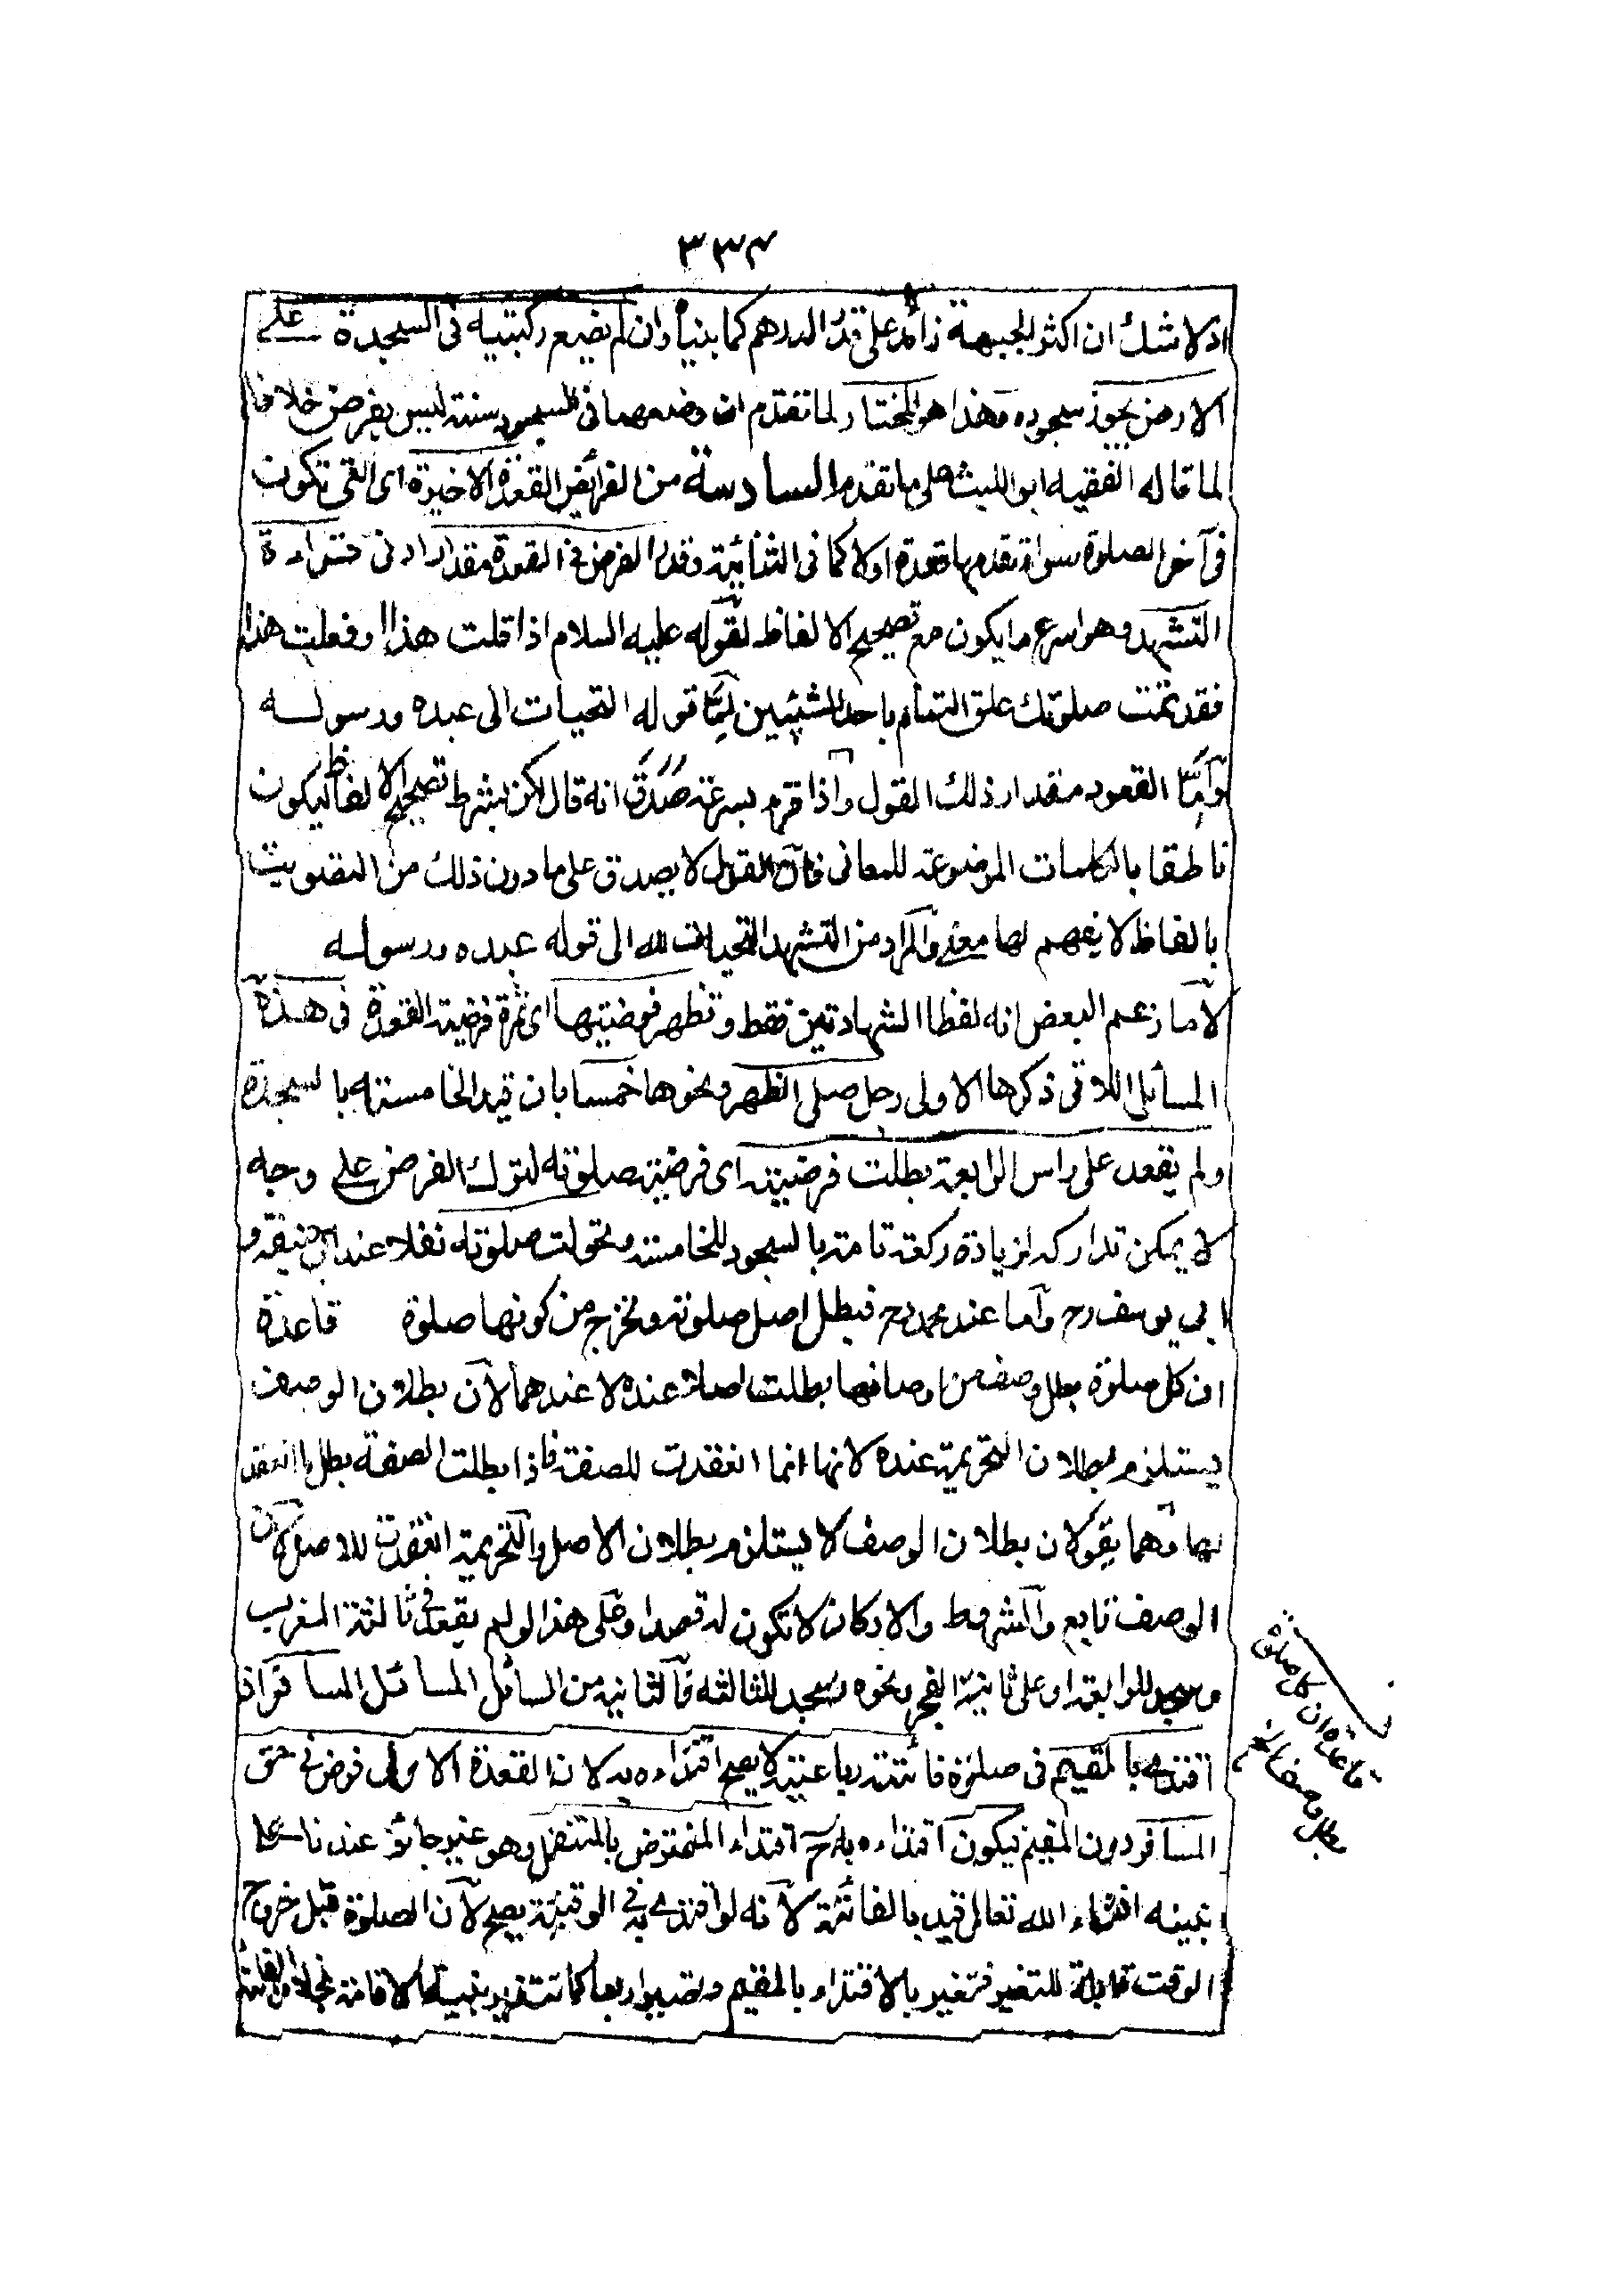 ٣٣٤
اذ لا شك ان اكثر الجبهة زائد على قدر الدرهم كما بنياه وان لم يضع ركبتيه فى السجدة على
الارض يجوز سجوده وهذا هو المختار لما تقدم ان وضعهما فى السجود سنة ليس بفرض خلافا
لما قاله الفقيه ابو الليث على ما تقدم السادسة من الفرائض القعدة الاخيرة اى التى تكون
فى آخر الصلوة سواء تقدمها قعدة اولا كما فى الثنائية وقدر الفرض فى القعدة مقدار ادنى قراءة
التشهد وهو اسرع ما يكون مع تصحيح الالفاظ لقوله عليه السلام اذا قلت هذا او فعلت هذا
فقد تمت صلوتك علق التمام باحد الشيئين اما قوله التحيات الى عبده ورسوله
واما القعود مقدار ذلك القول واذا قرء بسرعة صدق انه قال لكن بشرط تصحيح الالفاظ ليكون
ناطقا بالكلمات الموضوعة للمعانى فان القول لا يصدق على ما دون ذلك من التصويت
بالفاظ لا يفهم لها معنى والمراد من التشهد التحيات لله الى قوله عبده ورسوله
لا ما زعم البعض انه لفظا الشهادتين فقط وتظهر فرضيتها اى ثمرة فرضية القعدة فى هذه
المسائل اللاتى ذكرها الاولى رجل صلى الظهر ونحوها خمسا بان قيد الخامسة بالسجدة
ولم يقعد على راس الرابعة بطلت فرضيته اى فرضية صلوته لترك الفرض على وجه
لا يمكن تداركه لزيادة ركعة تامة بالسجود للخامسة وتحولت صلوته نفلا عند ابى حنيفة و
ابى يوسف رح واما عند محمد رح فبطل اصل صلوته وتخرج من كونها صلوة قاعدة
ان كل صلوة بطل وصف من اوصافها بطلت اصلا عنده لا عندهما لأن بطلان الوصف
يستلزم بطلان التحريمة عنده لانها انما انعقدت للصفة فاذا بطلت الصفة بطل ما انعقد
بها وهما يقولان بطلان الوصف لا يستلزم بطلان الاصل والتحريمة انعقدت للاصل لان
الوصف تابع والشروط والاركان لا تكون له قصدا وعلى هذا لو لم يقعد فى ثالثة المغرب
وسجد للرابعة او على ثانية الفجر ونحوه وسجد للثالثة والثانية من المسائل المسافر اذا
اقتدى بالمقيم فى صلوة فائتة رباعية لا يصح اقتداءه به لان القعدة الاولى فرض فى حق
المسافر دون المقيم فيكون اقتداءه به ح اقتداء المفترض بالمتنفل وهو غير جائز عندنا على
نبينه انشاء الله تعالى قيد بالفائتة لانه لو اقتدى به فى الوقتية يصح لان الصلوة قبل خروج
الوقت قابلة للتغير فتغير بالاقتداء بالمقيم وتصير اربعا كما تتغير بنية الاقامة بخلاف الفائتة
قاعدة ان كل صلوة
بطل وصف